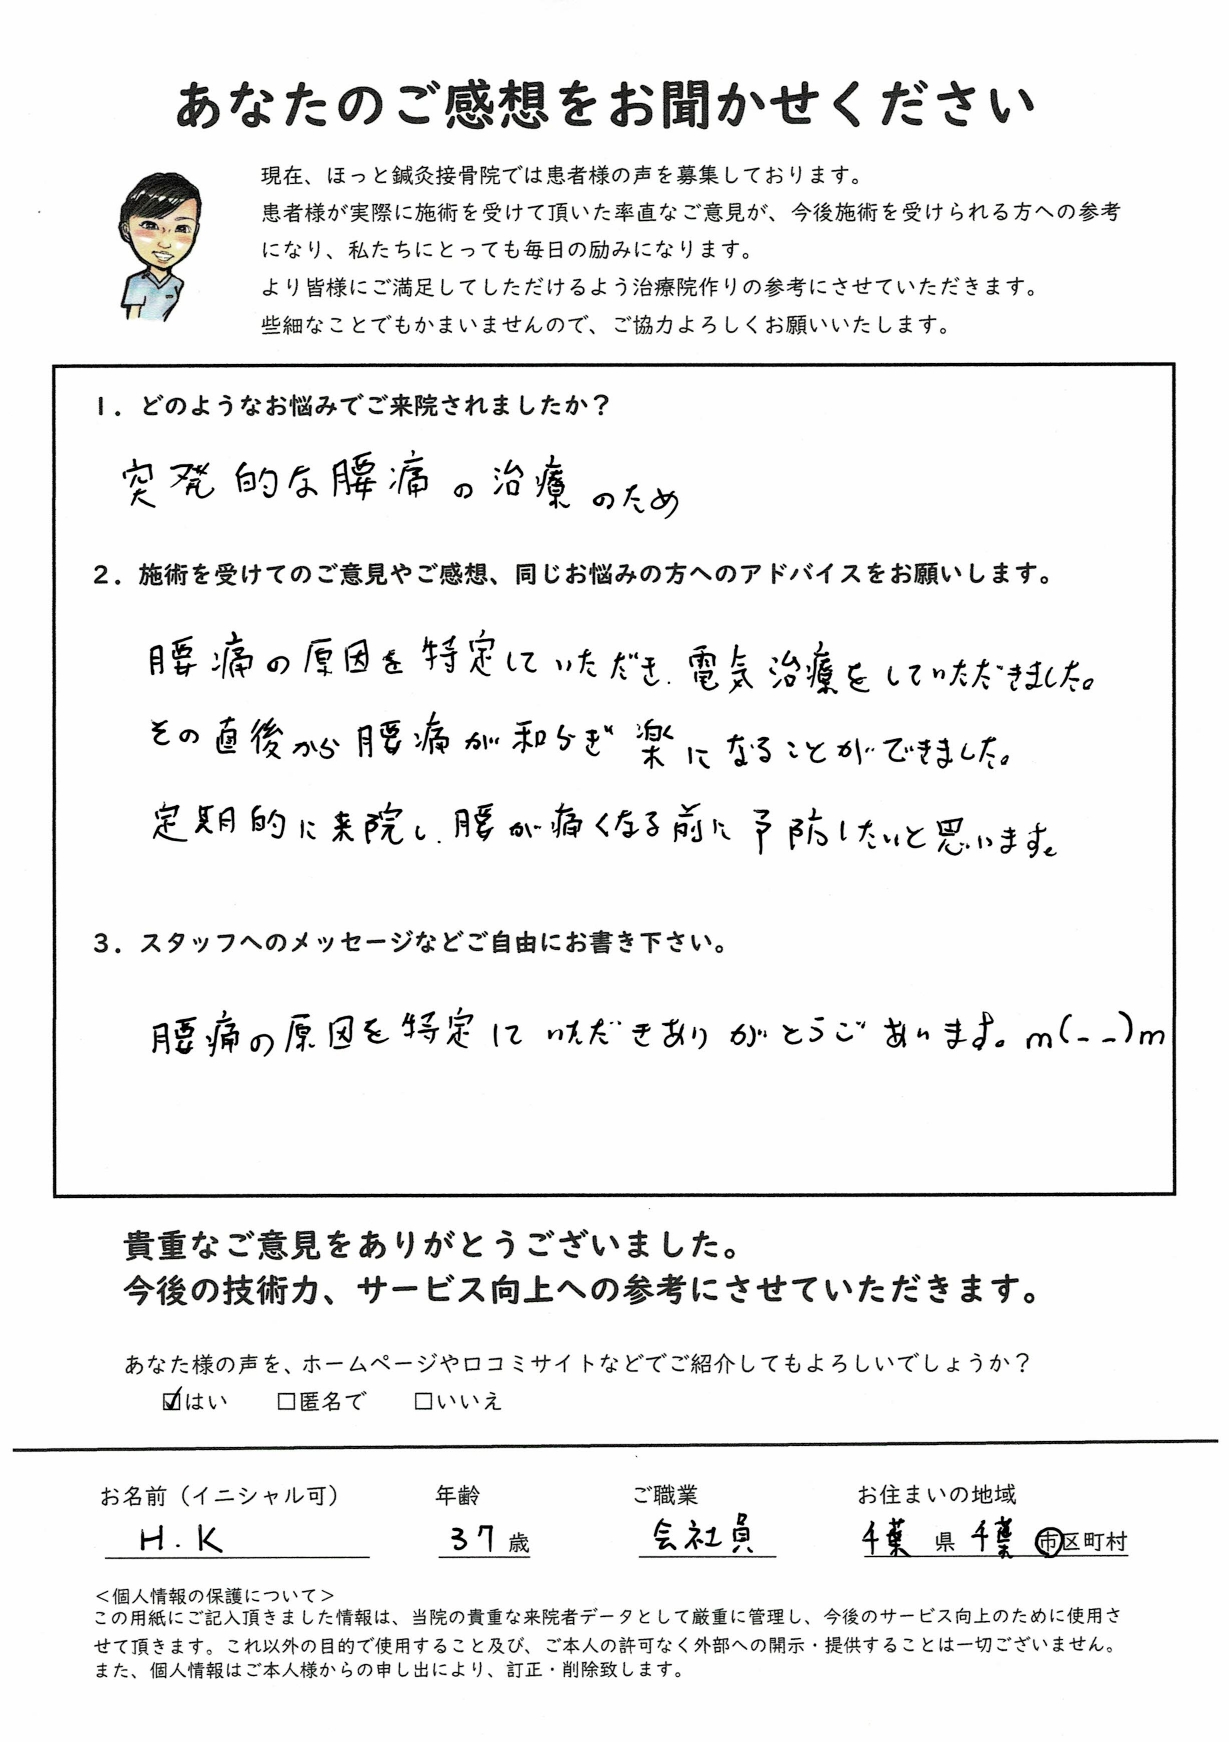 あなたのご感想をお聞かせください
現在、ほっと鍼灸接骨院では患者様の声を募集しております。
患者様が実際に施術を受けて頂いた率直なご意見が、今後施術を受けられる方への参考
になり、私たちにとっても毎日の励みになります。
より皆様にご満足してしただけるよう治療院作りの参考にさせていただきます。
些細なことでもかまいませんので、ご協力よろしくお願いいたします。
1．どのようなお悩みでご来院されましたか？
突発的な腰痛の治療のため
2．施術を受けてのご意見やご感想、同じお悩みの方へのアドバイスをお願いします。
腰痛の原因を特定していただき、電気治療をしていただきました。
その直後から腰痛が和らぎ楽になることができました。
定期的に来院し、腰が痛くなる前に予防したいと思います。
3．スタッフへのメッセージなどご自由にお書き下さい。
腰痛の原因を特定していただきありがとうございます。m(--)m
貴重なご意見をありがとうございました。
今後の技術力、サービス向上への参考にさせていただきます。
あなた様の声を、ホームページや口コミサイトなどでご紹介してもよろしいでしょうか？
☑はい　□匿名で　□いいえ
お名前（イニシャル可）　年齢　ご職業　お住まいの地域
H.K　37歳　会社員　千葉県千葉市区町村
＜個人情報の保護について＞
この用紙にご記入頂きました情報は、当院の貴重な来院者データとして厳重に管理し、今後のサービス向上のために使用さ
せて頂きます。これ以外の目的で使用すること及び、ご本人の許可なく外部への開示・提供することは一切ございません。
また、個人情報はご本人様からの申し出により、訂正・削除致します。